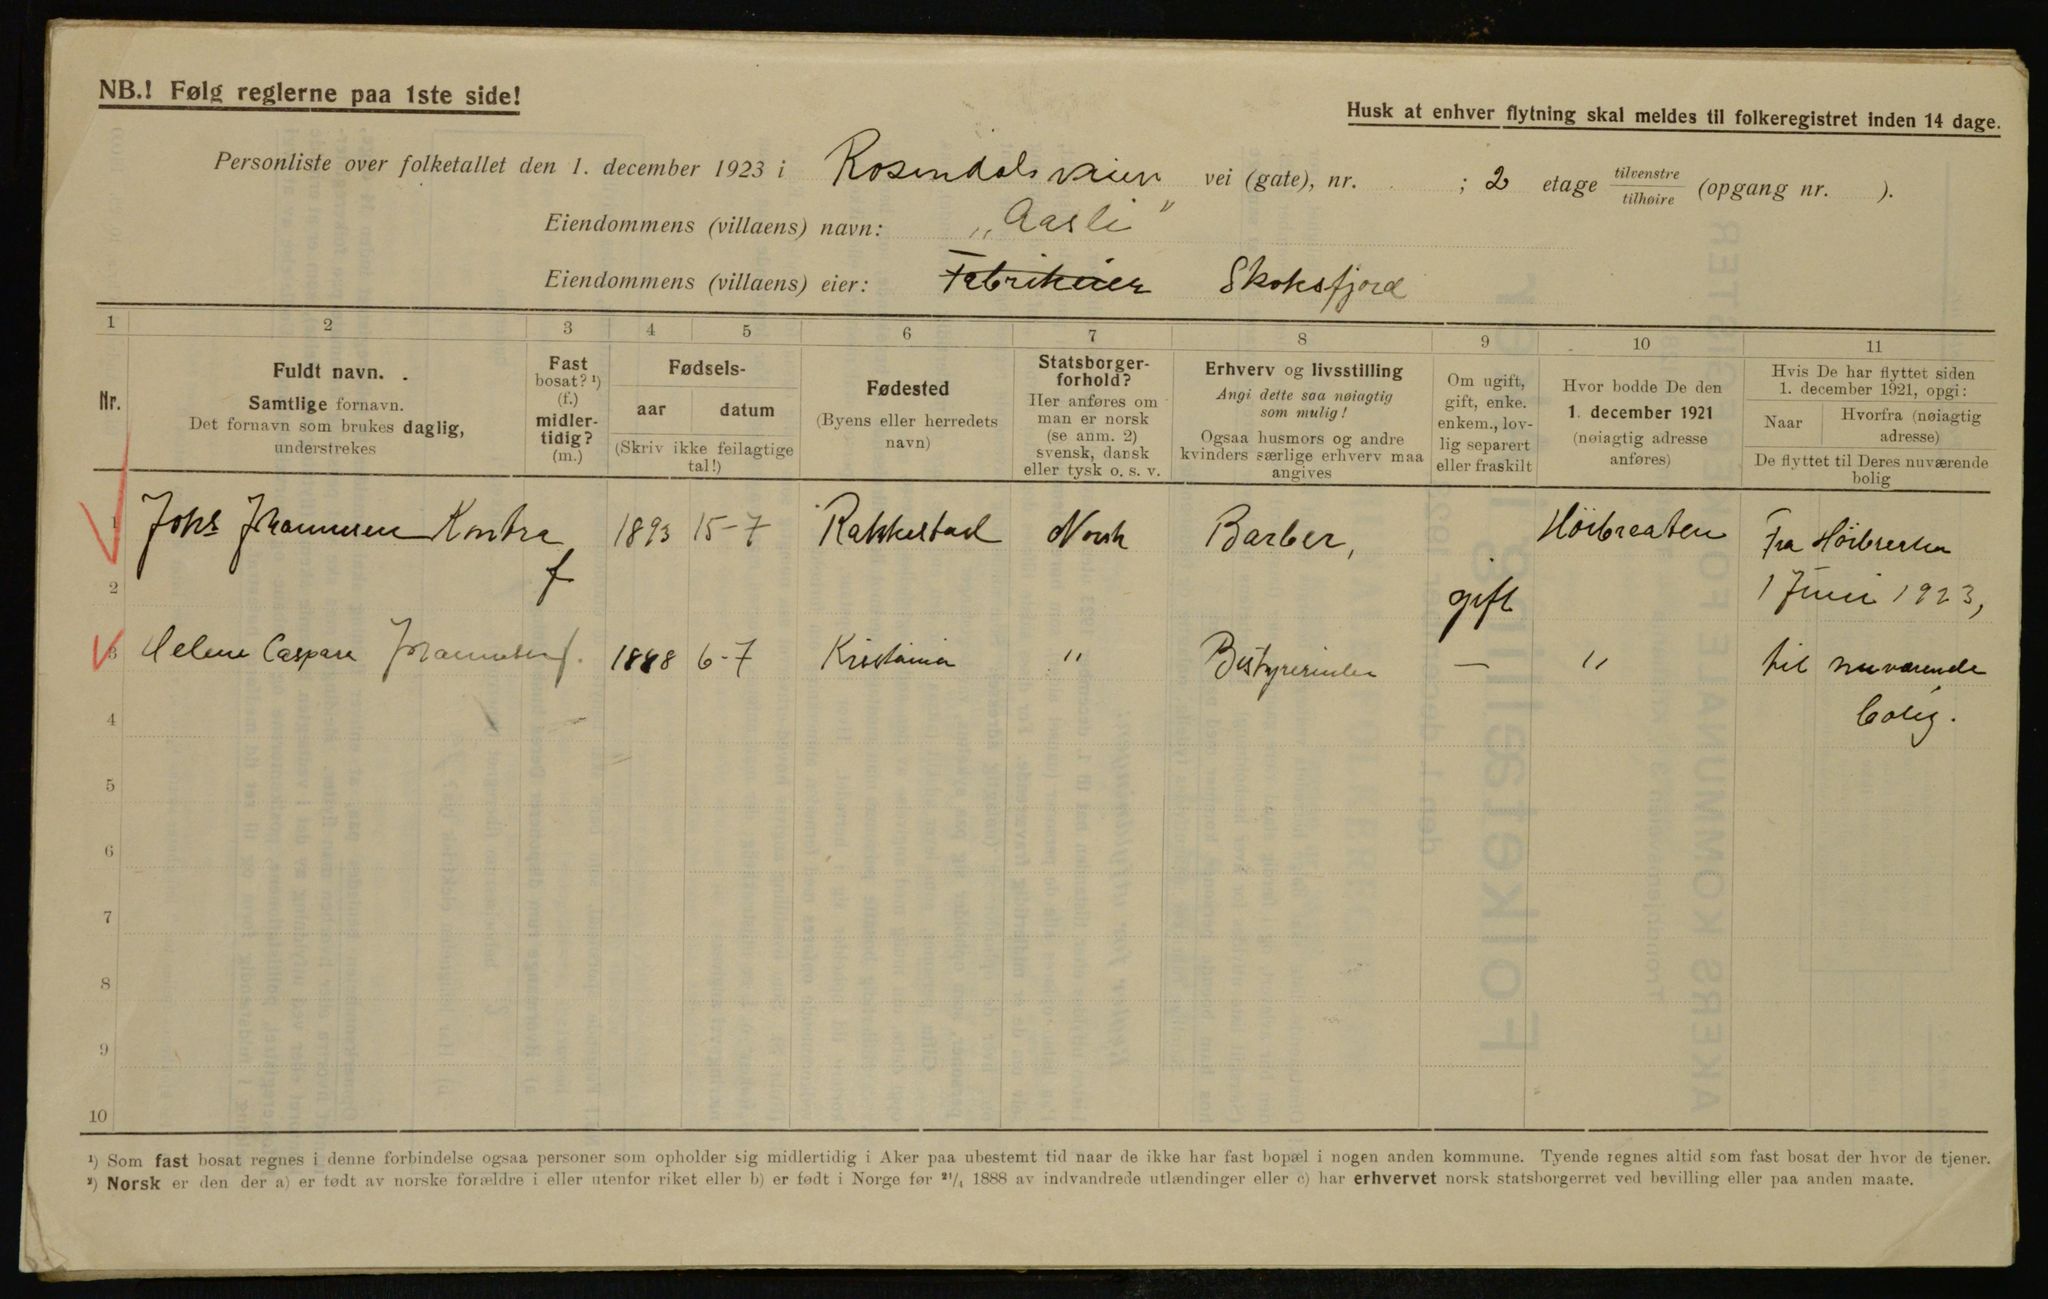 NB.! Følg reglerne paa 1ste side!
Husk at enhver flytning skal meldes til folkeregistret inden 14 dage.
Personliste over folketallet den 1. december 1923 i Rosendalsveien vei (gate), nr. ; 2 etage tilvenstre tilhøire (opgang nr. ).
Eiendommens (villaens) navn: „Aasli"
Eiendommens (villaens) eier: Fabrikeier Skoksfjord
1 2 3 4 5 6 7 8 9 10 11
Nr.
Fuldt navn.
Samtlige fornavn.
Det fornavn som brukes daglig,
understrekes
Fast
bosat? ¹)
(f.)
midler-
tidig?
(m.)
Fødsels-
aar datum
(Skriv ikke feilagtige
tal!)
Fødested
(Byens eller herredets
navn)
Statsborger-
forhold?
Her anføres om
man er norsk
(se anm. 2)
svensk, dansk
eller tysk o. s. v.
Erhverv og livsstilling
Angi dette saa nøiagtig
som mulig!
Ogsaa husmors og andre
kvinders særlige erhverv maa
angives
Om ugift,
gift, enke.
enkem., lov-
lig separert
eller fraskilt
Hvor bodde De den
1. december 1921
(nøiagtig adresse
anføres)
Hvis De har flyttet siden
1. december 1921, opgi:
Naar Hvorfra (nøiagtig
adresse)
De flyttet til Deres nuværende
bolig
1 Johs Johannesen Kontra 1893 15-7 Rakkestad Norsk Barber, Høibraaten Fra Høibraaten
2 f gift 1 Juni 1923,
3 Helene Caspara Johannesen f. 1888 6-7 Kristiania " Bestyrerinde — " til nuværende
4 bolig.
5
6
7
8
9
10
¹) Som fast bosat regnes i denne forbindelse ogsaa personer som opholder sig midlertidig i Aker paa ubestemt tid naar de ikke har fast bopæl i nogen anden kommune. Tyende regnes altid som fast bosat der hvor de tjener.
²) Norsk er den der a) er født av norske forældre i eller utenfor riket eller b) er født i Norge før ²¹/₄ 1888 av indvandrede utlændinger eller c) har erhvervet norsk statsborgerret ved bevilling eller paa anden maate.